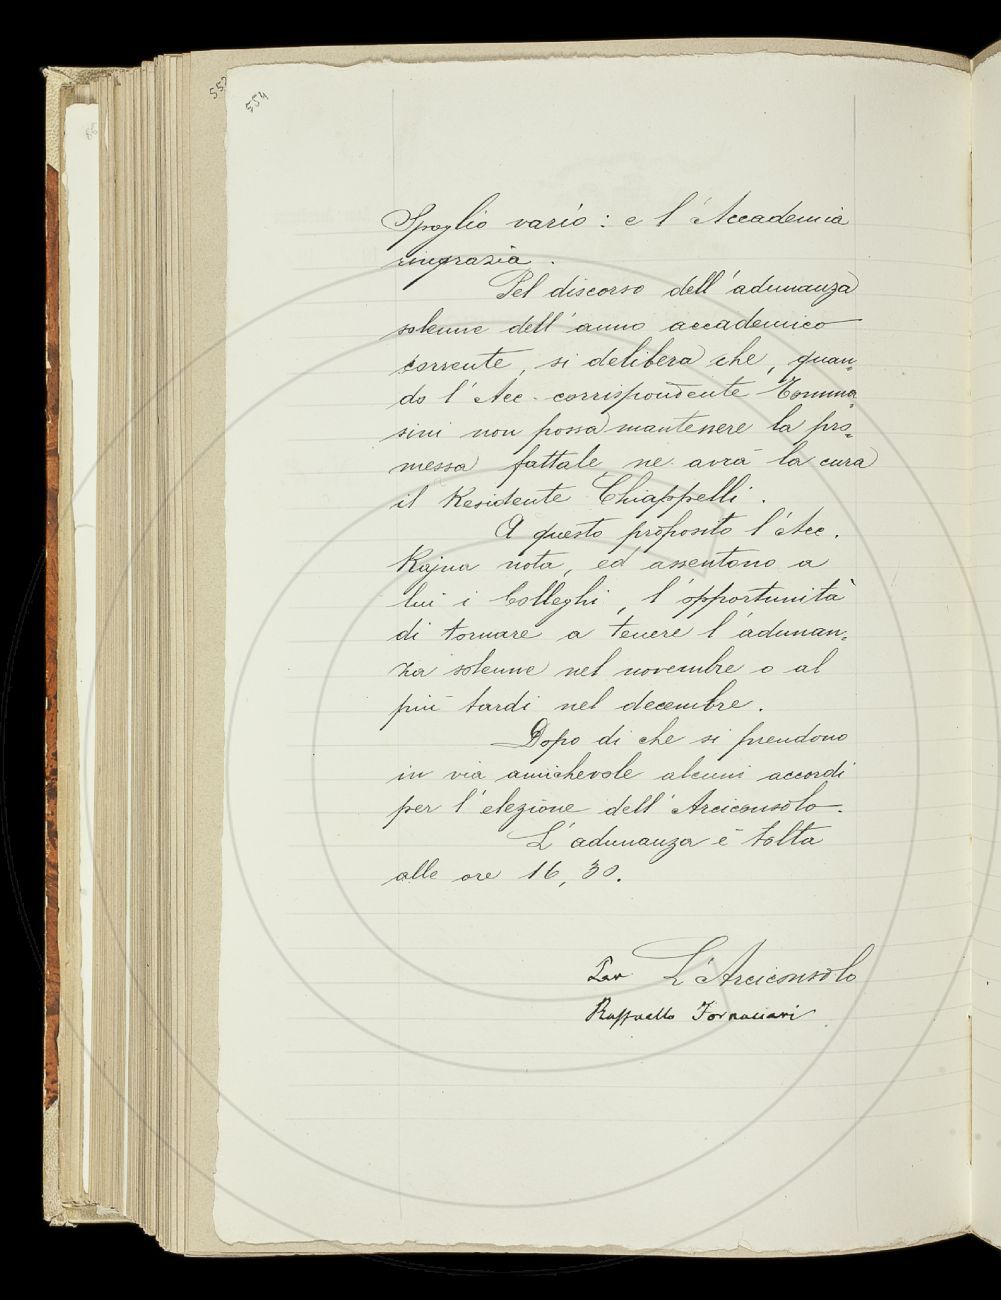 554
Spoglio vario: e l'Accademia
ringrazia.
Pel discorso dell'adunanza
solenne dell'anno accademico
corrente, si delibera che, quan=
do l'Acc. corrispondente Tomma=
sini non possa mantenere la pro=
messa fattale, ne avrà la cura
il Residente Chiappelli.
A questo proposito l'Acc.
Rajna nota, ed assentono a
lui i Colleghi, l'opportunità
di tornare a tenere l'adunan=
za solenne nel novembre o al
più tardi nel decembre.
Dopo di che si prendono
in via amichevole alcuni accordi
per l'elezione dell'Arciconsolo.
L'adunanza è tolta
alle ore 16,30.
L'Arciconsolo
Raffaello Fornaciari